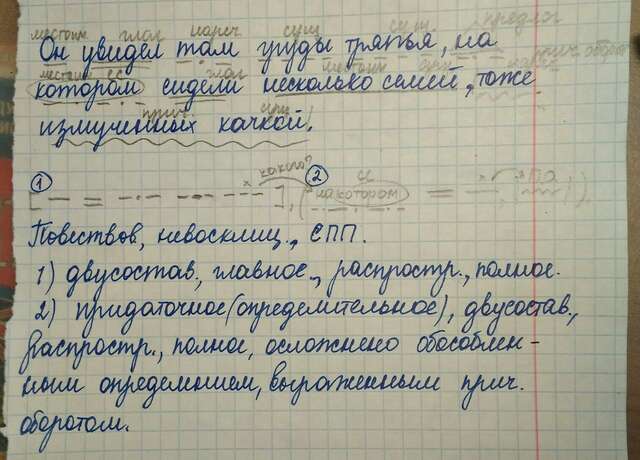 местоим глаг нареч сущ сущ предлог
Он увидел там груды тряпья, на
местоим глаг прич. оборот
котором сидели несколько семей, тоже
прич. сущ
измученных качкой.
какого?
① [ ], ② (на котором = ПО ).
Повествов, невосклиц., СПП.
1) двусостав, главное, распростр., полное.
2) придаточное (определительное), двусостав.,
распростр., полное, осложнено обособлен-
ным определением, выраженным прич.
оборотом.